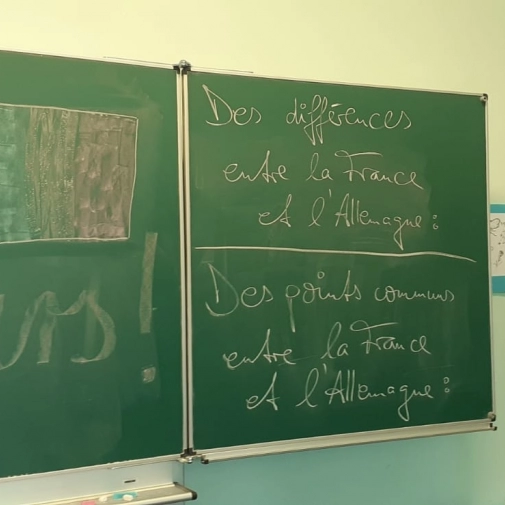 Des différences
entre la France
et l'Allemagne :
Des points communs
entre la France
et l'Allemagne :